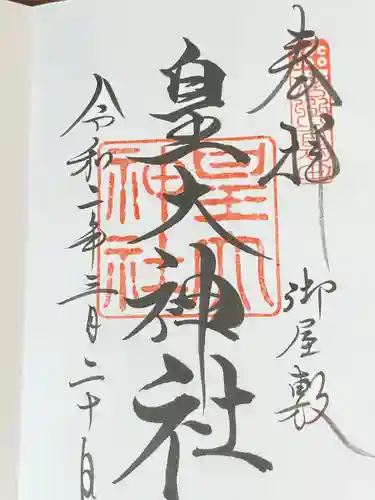 奉拝
御屋敷
皇大神社
令和二年三月二十日
皇大
神社